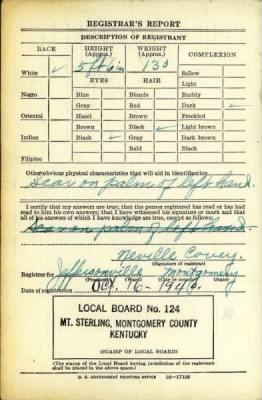 REGISTRAR'S REPORT
DESCRIPTION OF REGISTRANT
RACE HEIGHT (Approx.) WEIGHT (Approx.) COMPLEXION
White ✓ 5 ft 6 in 130 Sallow
EYES HAIR Light
Negro Blue Blonde Ruddy
Gray Red Dark ✓
Oriental Hazel Brown Freckled
Brown Black ✓ Light brown
Indian Black ✓ Gray Dark brown
Bald Black
Filipino
Other obvious physical characteristics that will aid in identification
Scar on palm of left hand.
I certify that my answers are true; that the person registered has read or has had
read to him his own answers; that I have witnessed his signature or mark and that
all of his answers of which I have knowledge are true, except as follows:
Scar on palm of left hand.
Neville Covey.
(Signature of registrar)
Registrar for Jeffersonville Montgomery
Date of registration Oct. 16-1940.
LOCAL BOARD No. 124
MT. STERLING, MONTGOMERY COUNTY
KENTUCKY
(STAMP OF LOCAL BOARD)
(The stamp of the Local Board having jurisdiction of the registrant
shall be placed in the above space.)
U. S. GOVERNMENT PRINTING OFFICE 16-17105